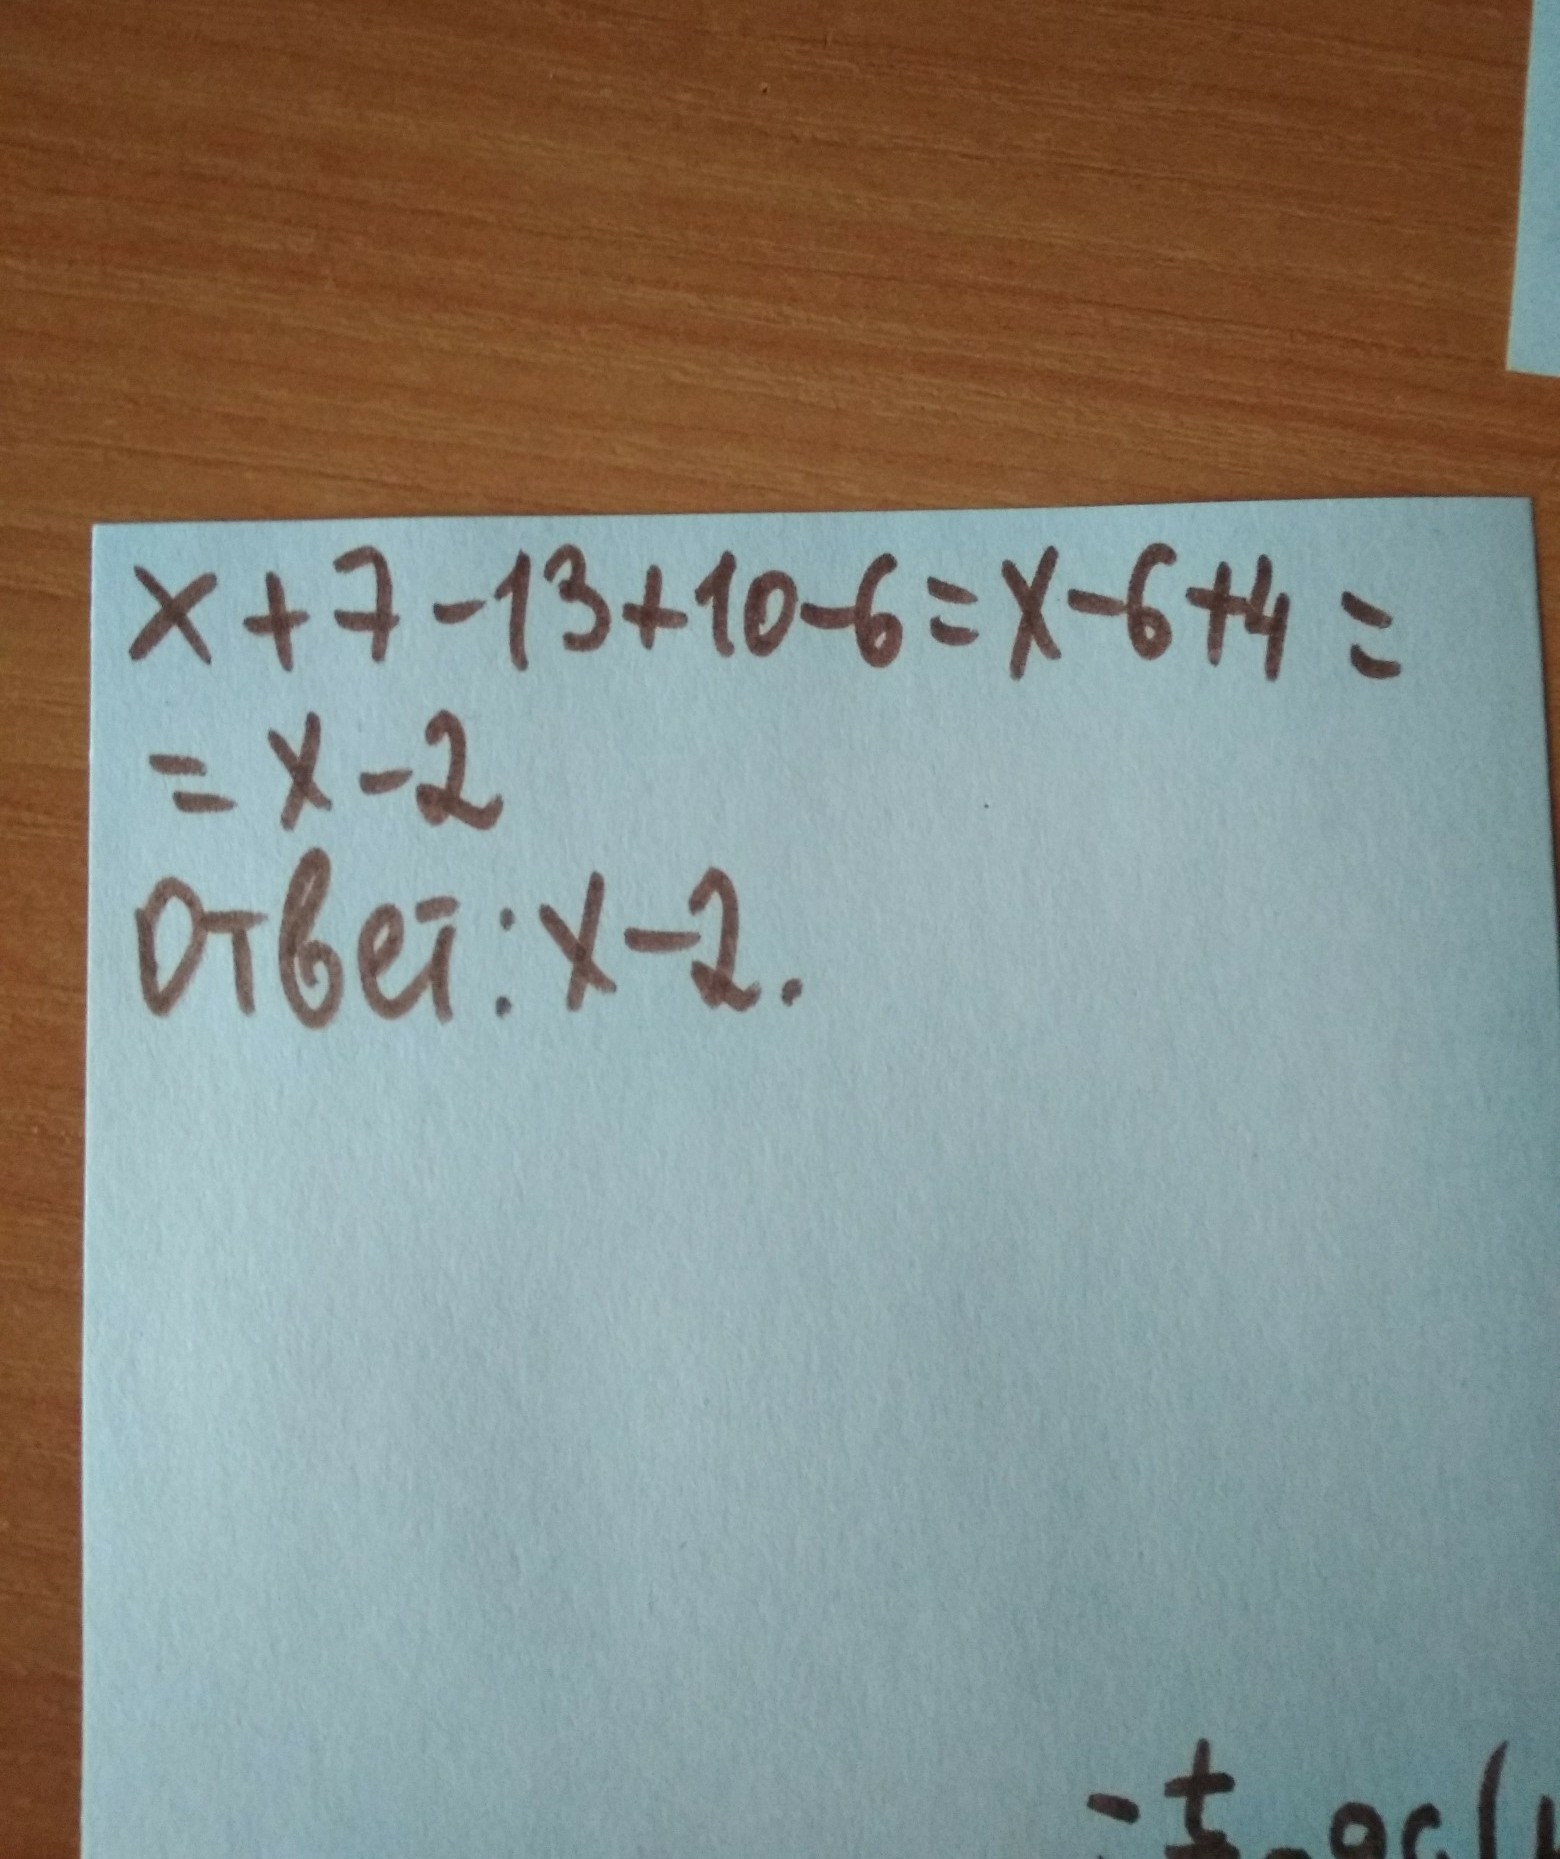 x+7-13+10-6=x-6+4=
=x-2
Ответ: x-2.